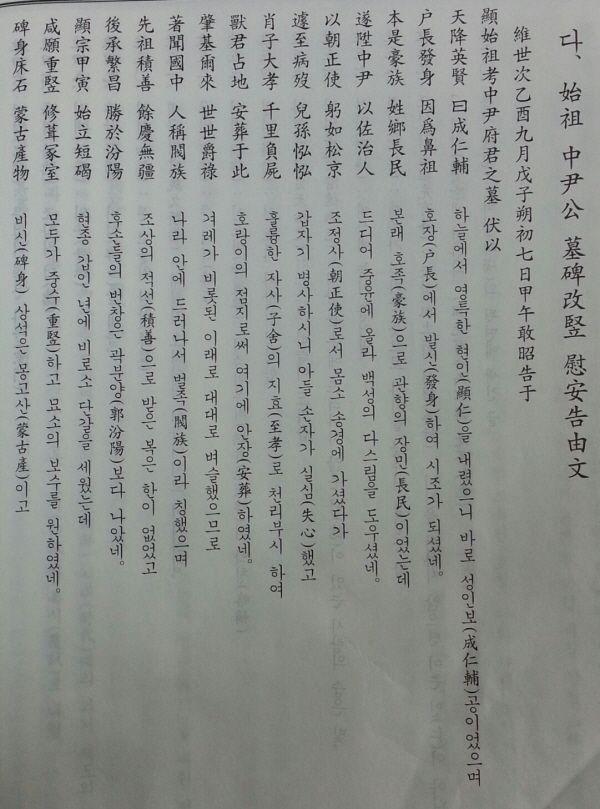 다、始祖 中尹公 墓碑改竪 慰安告由文
維世次乙酉九月戊子朔初七日甲午敢昭告于
顯始祖考中尹府君之墓 伏以
天降英賢 曰成仁輔 하늘에서 영특한 현인(顯仁)을 내렸으니 바로 성인보(成仁輔)공이었으며
户長發身 因爲鼻祖 호장(户長)에서 발신(發身)하여 시조가 되셨네。
本是豪族 姓鄕長民 본래 호족(豪族)으로 관향의 장민(長民)이었는데
遂陞中尹 以佐治人 드디어 중윤에 올라 백성의 다스림을 도우셨네。
以朝正使 躬如松京 조정사(朝正使)로서 몸소 송경에 가셨다가
遽至病歿 兒孫泓泓 갑자기 병사하시니 아들 손자가 실심(失心)했고
肖子大孝 千里負屍 훌륭한 자사(子舍)의 지효(至孝)로 천리부시 하여
獸君占地 安葬于此 호랑이의 점지로써 여기에 안장(安葬)하였네。
肇基爾來 世世爵祿 겨레가 비롯된 이래로 대대로 벼슬했으므로
著聞國中 人稱閥族 나라 안에 드러나서 벌족(閥族)이라 칭했으며
先祖積善 餘慶無疆 조상의 적선(積善)으로 받은 복은 한이 없었고
後承繁昌 勝於汾陽 후손들의 번창은 곽분양(郭汾陽)보다 나았네。
顯宗甲寅 始立短碣 현종 갑인 년에 비로소 단갈을 세웠는데
咸願重竪 修葺冢室 모두가 중수(重竪)하고 묘소의 보수를 원하였네。
碑身床石 蒙古產物 비신(碑身) 상석은 몽고산(蒙古產)이고